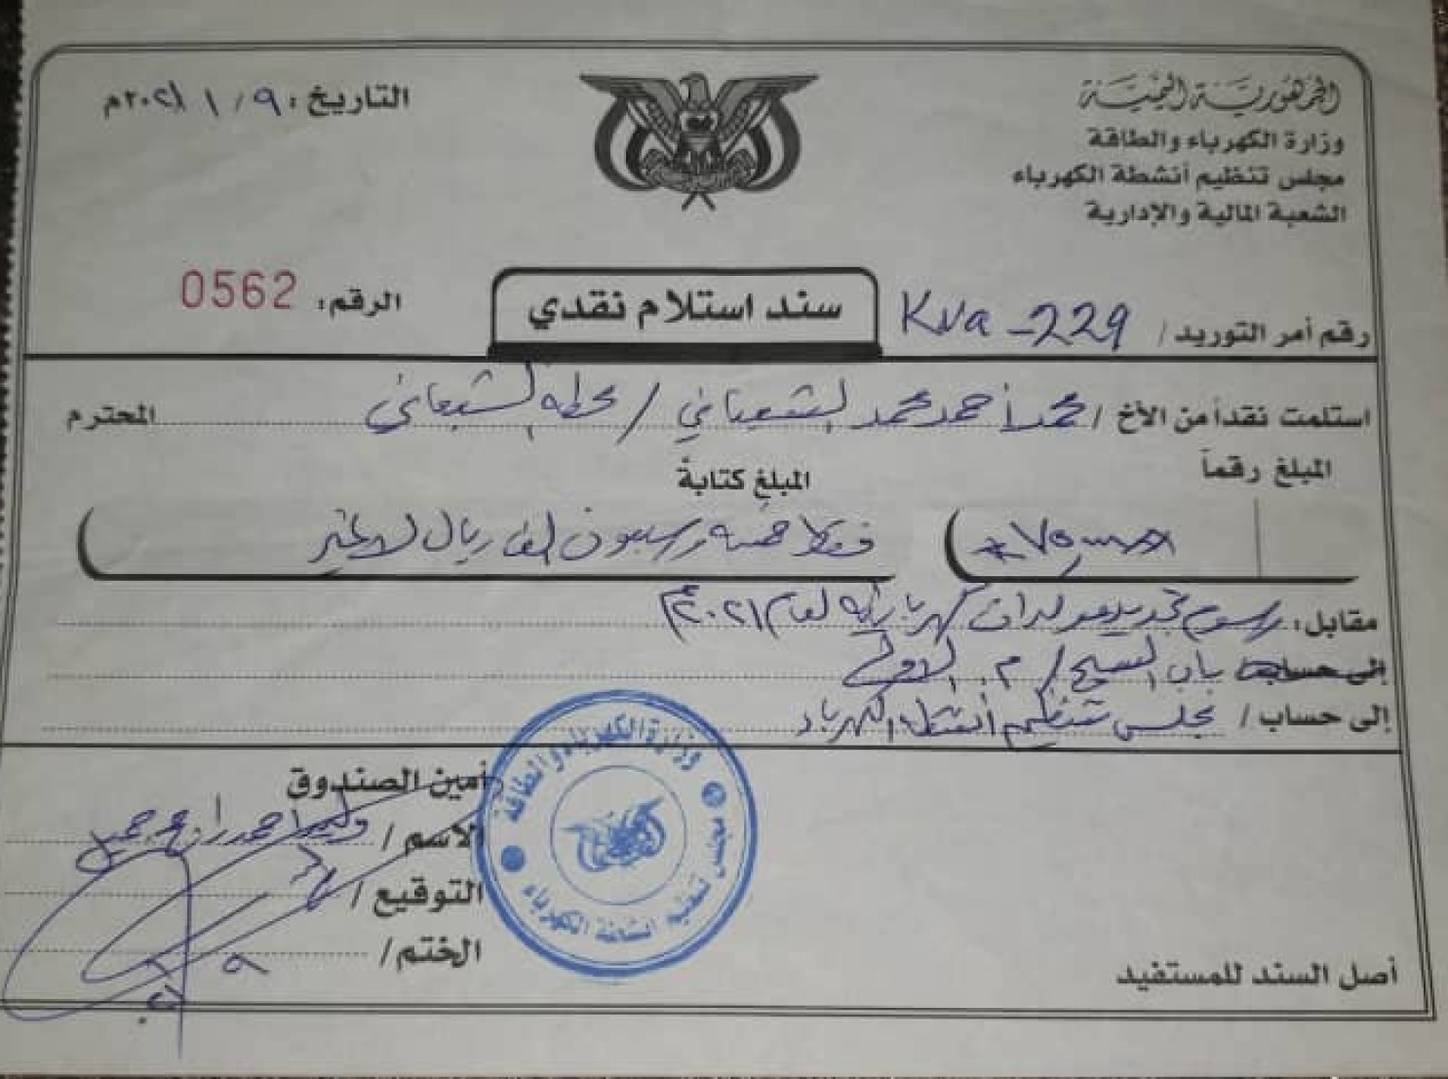 الجمهورية اليمنية
وزارة الكهرباء والطاقة
مجلس تنظيم أنشطة الكهرباء
الشعبة المالية والإدارية
التاريخ: ٩ / ١ / ٢٠٢١م
الرقم: 0562
سند استلام نقدي
رقم أمر التوريد / Kva - 229
استلمت نقداً من الأخ / محمد أحمد محمد الشعباني / محطة الشعباني المحترم
المبلغ رقماً
المبلغ كتابةً
فقط خمسة وسبعون الف ريال لا غير
مقابل: رسوم تجديد مولدات كهربائية لعام ٢٠٢١م
إلى حساب / باب السبح / م.
إلى حساب / مجلس تنظيم أنشطة الكهرباء
أمين الصندوق
الاسم / وليد احمد راجح جميل
التوقيع /
الختم /
أصل السند للمستفيد
وزارة الكهرباء والطاقة
مجلس تنظيم انشطة الكهرباء